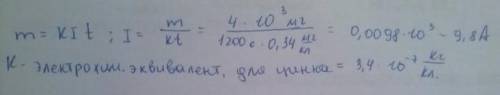 m = kIt ; I = m/kt = 4 · 10³ мг / 1200 с · 0,34 мг/кл = 0,0098 · 10³ ~ 9,8 А
К - электрохим. эквивалент, для цинка = 3,4 · 10⁻⁷ кг/кл.